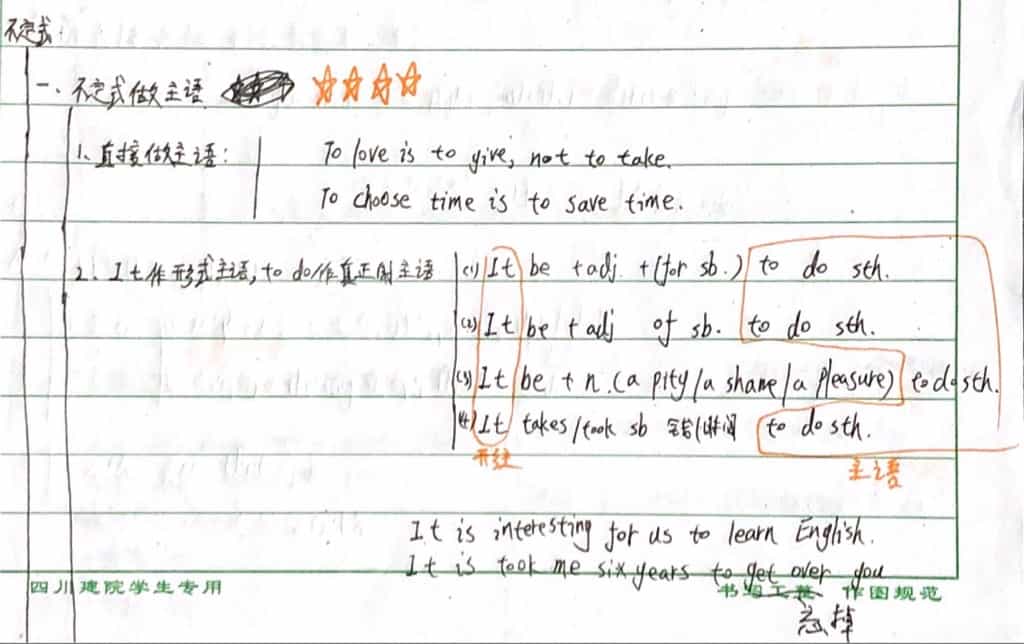 不定式
一、不定式做主语
1、直接做主语: To love is to give, not to take.
To choose time is to save time.
2、It作形式主语, to do作真正的主语 (1) It be +adj. +(for sb.) to do sth.
(2) It be +adj of sb. to do sth.
(3) It be + n. (a pity/a shame/a pleasure) to do sth.
(4) It takes/took sb 金钱/时间 to do sth.
形主 主语
It is interesting for us to learn English.
It is took me six years to get over you
四川建院学生专用 书写工整 作图规范
忘掉